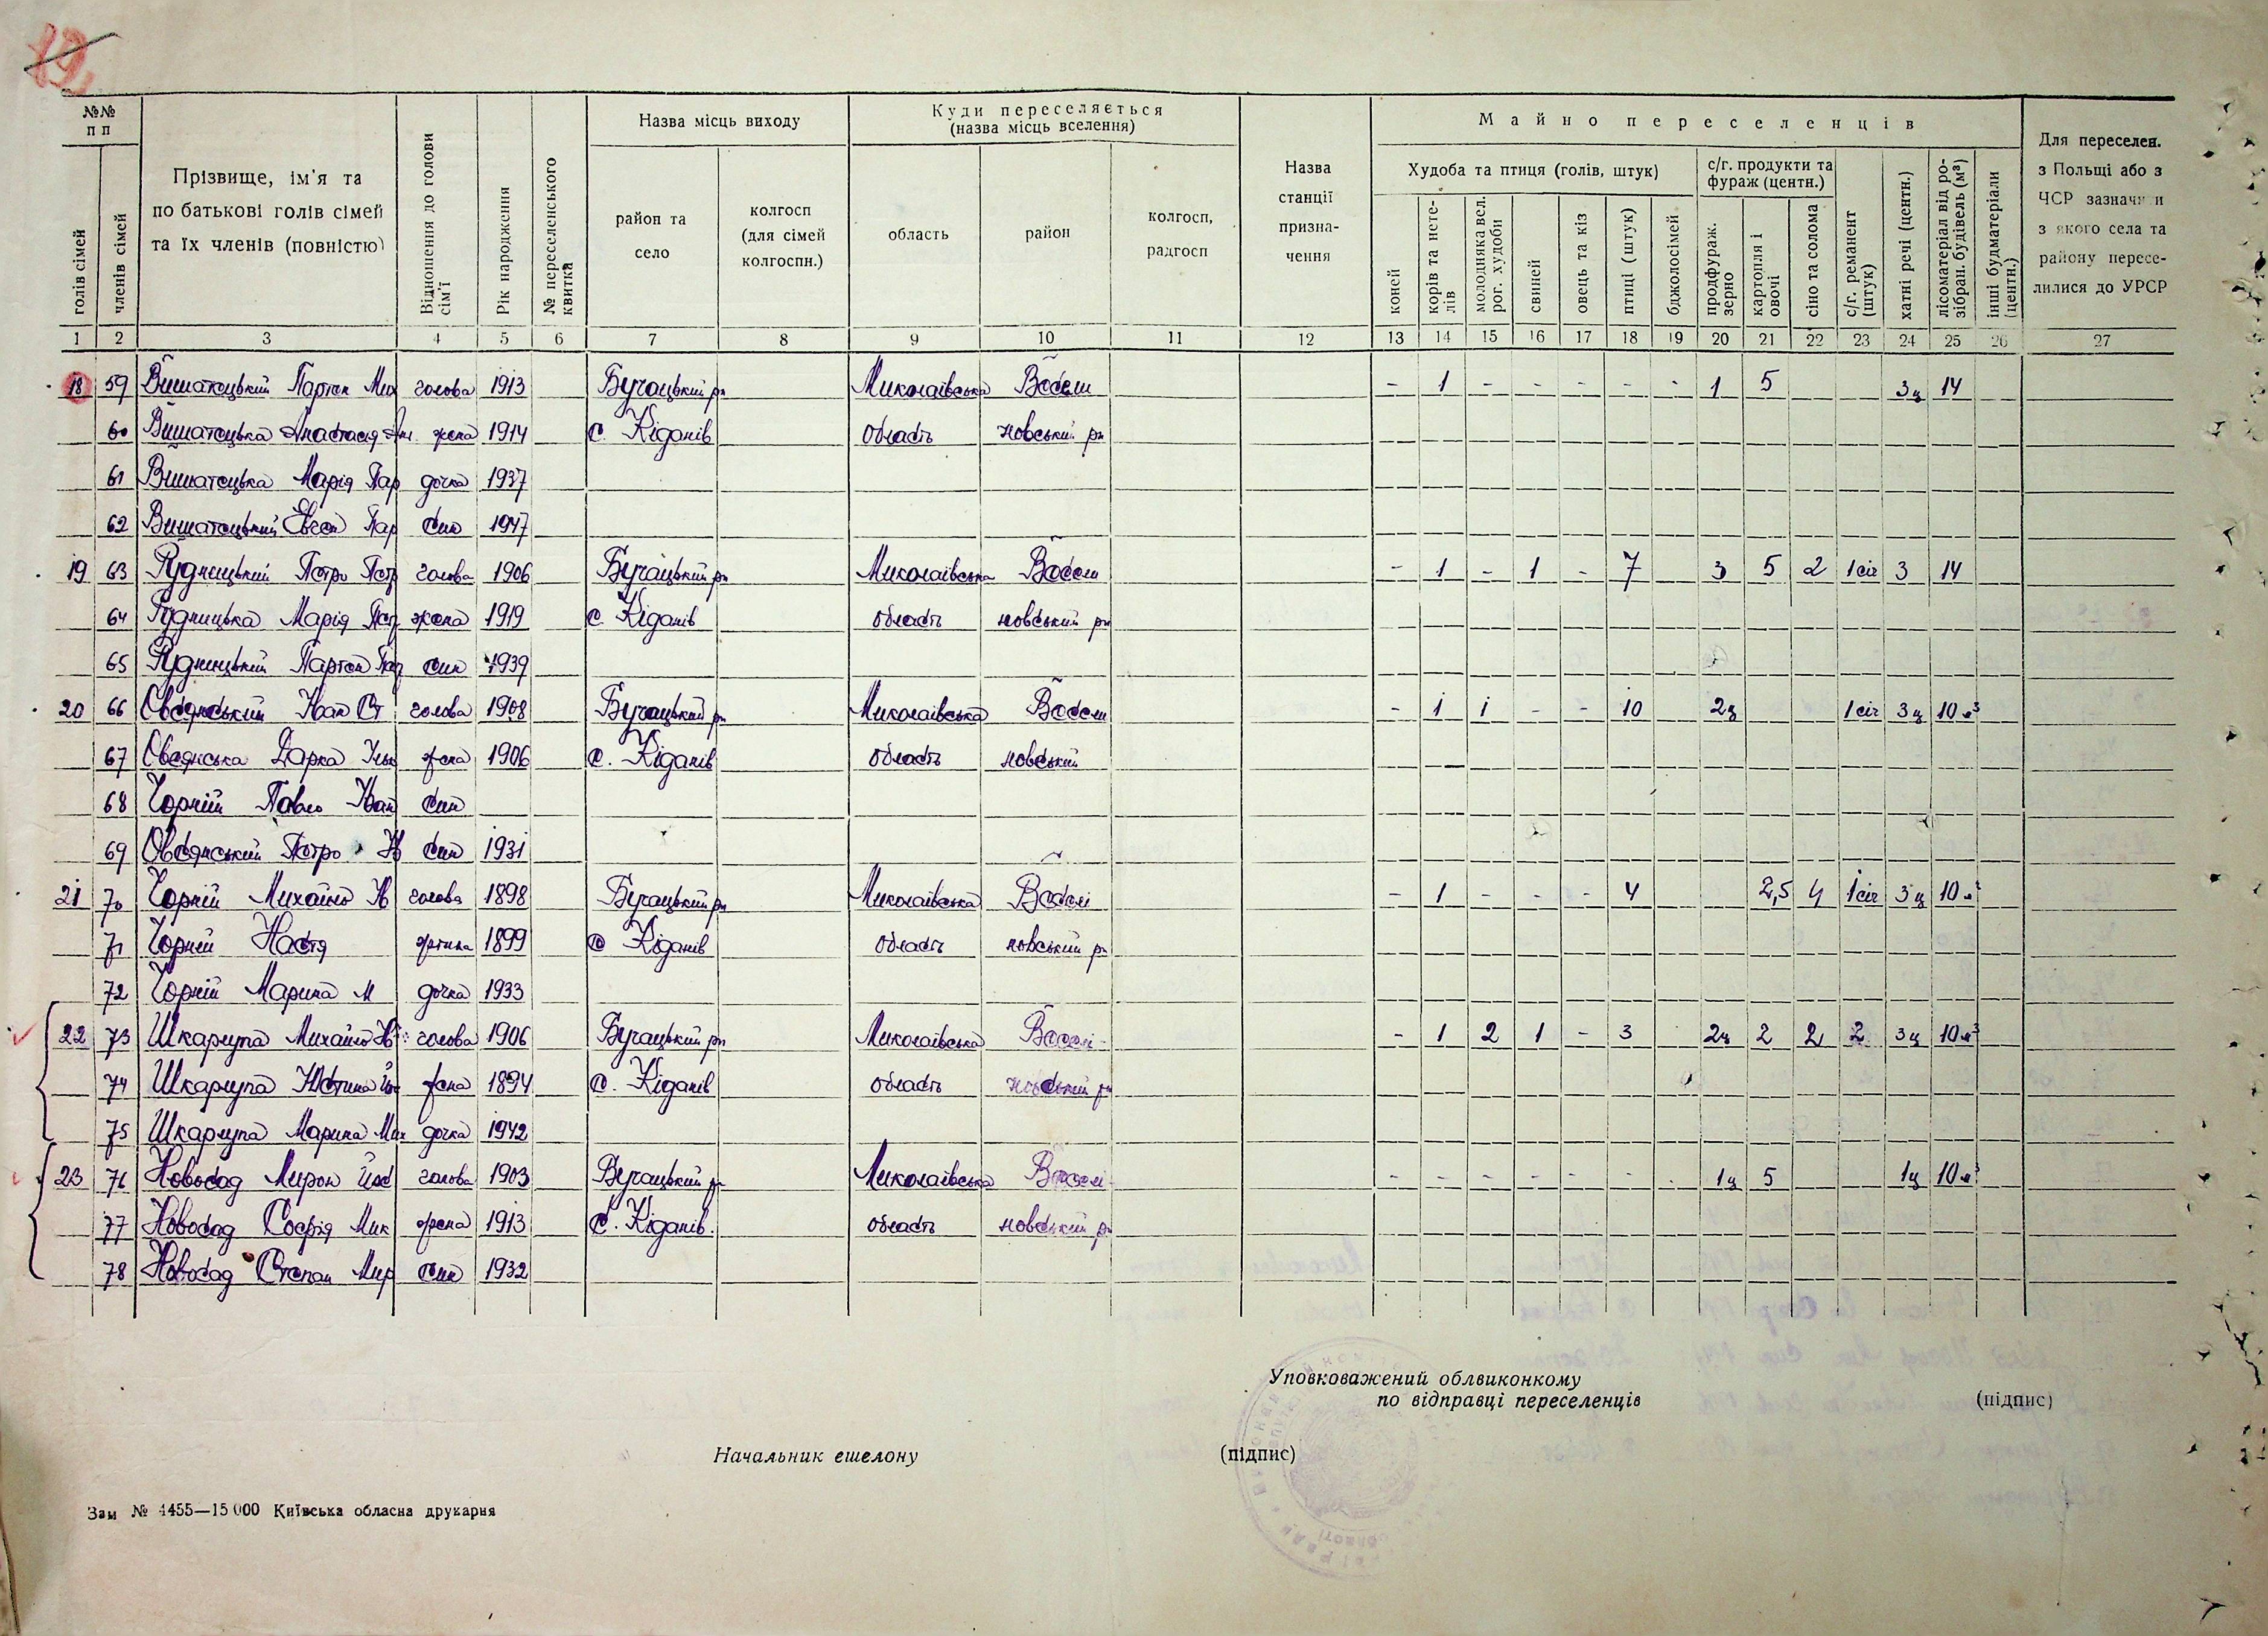 19
№№ п п
голів сімей
членів сімей
Прізвище, ім'я та по батькові голів сімей та їх членів (повністю)
Відношення до голови сім'ї
Рік народження
№ переселенського квитка
Назва місць виходу
район та село
колгосп (для сімей колгоспн.)
Куди переселяється (назва місць вселення)
область
район
колгосп, радгосп
Назва станції призна-чення
Майно переселенців
Худоба та птиця (голів, штук)
коней
корів та нете-лів
молодняка вел. рог. худоби
свиней
овець та кіз
птиці (штук)
бджолосімей
с/г. продукти та фураж (центн.)
продфураж. зерно
картопля і овочі
сіно та солома
с/г. реманент (штук)
хатні речі (центн.)
лісоматеріал від ро-зібран. будівель (м³)
інші будматеріали (центн.)
Для переселен. з Польщі або з ЧСР зазначити з якого села та району пересе-лилися до УРСР
1 2 3 4 5 6 7 8 9 10 11 12 13 14 15 16 17 18 19 20 21 22 23 24 25 26 27
18 59 голова 1913 Бучацький рн Миколаївська - 1 - - - - - 1 5 3ц 14
60 Анастасія жена 1914 с. Кіданів область новський рн
61 Марія Пар дочка 1937
62 Пар син 1947
19 63 Рудницький Петро Петр голова 1906 Бучацький рн Миколаївська - 1 - 1 - 7 3 5 2 1 січ 3 14
64 Рудницька Марія Пет жена 1919 с. Кіданів область новський рн
65 Рудницький син 1939
20 66 Овсянський Іван Ст голова 1908 Бучацький рн Миколаївська - 1 1 - - 10 2ц 1 січ 3ц 10 м³
67 Овсянська Дарка жена 1906 с. Кіданів область новський
68 Чорній Павло Іван син
69 Овсянський Петро І син 1931
21 70 Чорній Михайло І голова 1898 Бучацький рн Миколаївська - 1 - - - 4 2,5 4 1 січ 3ц 10 м³
71 Чорній Настя 1899 с Кіданів область новський рн
72 Чорній Марина М дочка 1933
22 73 Шкарлупа Михайло голова 1906 Бучацький рн Миколаївська - 1 2 1 - 3 2ц 2 2 2 3ц 10 м³
74 Шкарлупа Юстина жена 1894 с. Кіданів область новський рн
75 Шкарлупа Марина Мих дочка 1942
23 76 Новосад Мирон Йос голова 1903 Бучацький рн Миколаївська - - - - - - 1ц 5 1ц 10 м³
77 Новосад Софія Мик жена 1913 с. Кіданів. область новський рн
78 Новосад Степан Мир син 1932
Уповковажений облвиконкому
по відправці переселенців (підпис)
Начальник ешелону (підпис)
Зам № 4455—15 000 Київська обласна друкарня